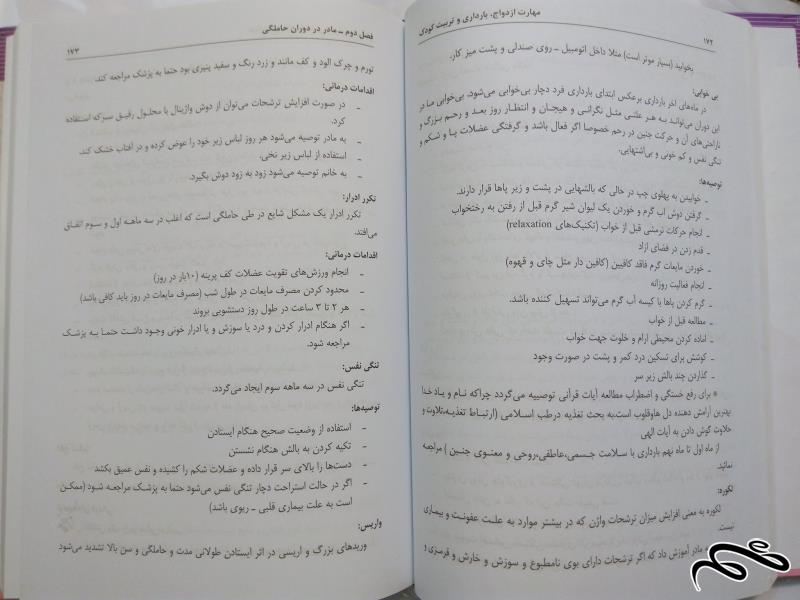 ۱۷۲
مهارت ازدواج، بارداری و تربیت کودک
بخوابید (بسیار موثر است) مثلا داخل اتومبیل ـ روی صندلی و پشت میز کار.
بی خوابی:
در ماه‌های اخر بارداری برعکس ابتدای بارداری فرد دچار بی‌خوابی می‌شود. بی‌خوابی مـا در
این دوران می‌توانـد بـه هـر علتـی مثـل نگرانـی و هیجـان و انتظـار روز بعـد و رحـم بـزرگ و
ناراحتی‌های آن و حرکت جنین در رحم خصوصا اگر فعال باشد و گرفتگی عضلات پـا و شـکم و
تنگی نفس و کم خونی و بی‌اشتهایی.
توصیه‌ها:
ـ خوابیدن به پهلوی چپ در حالی که بالشهایی در پشت و زیر پاها قرار دارند.
ـ گرفتن دوش اب گرم و خوردن یک لیوان شیر گرم قبل از رفتن به رختخواب
ـ انجام حرکات نرمشی قبل از خواب (تکنیک‌های relaxation)
ـ قدم زدن در فضای ازاد
ـ خوردن مایعات گرم فاقد کافیین (کافین دار مثل چای و قهوه)
ـ انجام فعالیت روزانه
ـ گرم کردن پاها با کیسه آب گرم می‌تواند تسهیل کننده باشد.
ـ مطالعه قبل از خواب
ـ اماده کردن محیطی ارام و خلوت جهت خواب
ـ کوشش برای تسکین درد کمر و پشت در صورت وجود
ـ گذاردن چند بالش زیر سر
* برای رفع خستگی و اضطراب مطالعه آیات قرآنی توصییه می‌گردد چراکه نـام و یـاد خدا
بهترین آرامش دهنده دل هاوقلوب است.به بحث تغذیه درطب اسـلامی (ارتبـاط تغذیـه،تلاوت و
حلاوت گوش دادن به آیات الهی
از ماه اول تا ماه نهم بارداری با سـلامت جسـمی،عاطفی،روحی و معنـوی جنـین ) مراجعه
نمائید.
لکوره:
لکوره به معنی افزایش میزان ترشحات واژن که در بیشتر موارد به علـت عفونـت و بیماری
نیست.
مادر آموزش داد که اگر ترشحات دارای بوی نامطبوع و سوزش و خارش و قرمـزی و
فصل دوم ـ مادر در دوران حاملگی
۱۷۳
تورم و چرک الود و کف مانند و زرد رنگ و سفید پنیری بود حتما به پزشک مراجعه کند.
اقدامات درمانی:
ـ در صورت افزایش ترشحات می‌توان از دوش واژینال با محلـول رقیـق سـرکه استفاده
کرد.
ـ به مادر توصیه می‌شود هر روز لباس زیر خود را عوض کرده و در آفتاب خشک کند.
ـ استفاده از لباس زیر نخی.
ـ به خانم توصیه می‌شود زود به زود دوش بگیرد.
تکرر ادرار:
تکرر ادرار یک مشکل شایع در طی حاملگی است که اغلب در سه ماهـه اول و سـوم اتفـاق
می‌افتد.
اقدامات درمانی:
ـ انجام ورزش‌های تقویت عضلات کف پرینه (۱۰بار در روز)
ـ محدود کردن مصرف مایعات در طول شب (مصرف مایعات در روز باید کافی باشد)
ـ هر ۲ تا ۳ ساعت در طول روز دستشویی بروند
ـ اگر هنگام ادرار کردن و درد یا سوزش و یا ادرار خونی وجـود داشـت حتمـا بـه پزشـک
مراجعه شود.
تنگی نفس:
تنگی نفس در سه ماهه سوم ایجاد می‌گردد.
توصیه‌ها:
ـ استفاده از وضعیت صحیح هنگام ایستادن
ـ تکیه کردن به بالش هنگام نشستن
ـ دست‌ها را بالای سر قرار داده و عضلات شکم را کشیده و نفس عمیق بکشد
ـ اگر در حالت استراحت دچار تنگی نفس می‌شود حتما به پزشک مراجعه شـود (ممکـن
است به علت بیماری قلبی ـ ریوی باشد)
واریس:
وریدهای بزرگ و اریسی در اثر ایستادن طولانی مدت و حاملگی و سن بالا تشدید می‌شود